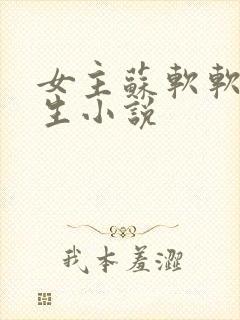 女主蘇軟軟
生小説
我本羞澀